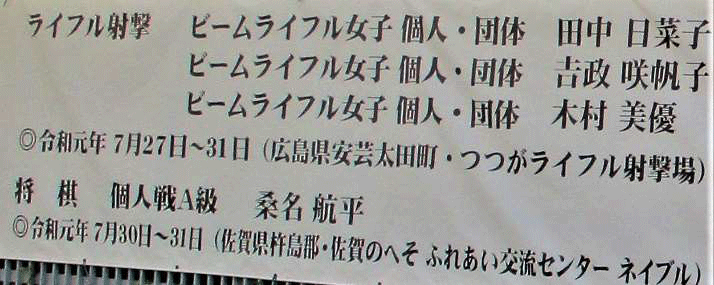 ライフル射撃 ビームライフル女子 個人・団体 田中 日菜子
ビームライフル女子 個人・団体 𠮷政 咲帆子
ビームライフル女子 個人・団体 木村 美優
◎令和元年 7月27日～31日（広島県安芸太田町・つつがライフル射撃場）
将棋 個人戦A級 桑名 航平
◎令和元年 7月30日～31日（佐賀県杵島郡・佐賀のへそ ふれあい交流センター ネイブル）